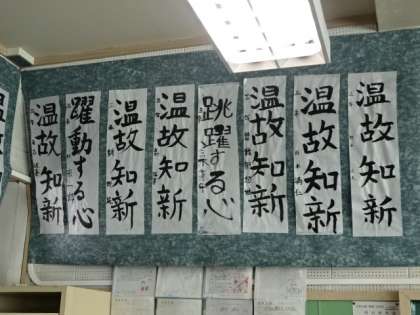 温故知新
温故知新
温故知新
跳躍する心
温故知新
温故知新
躍動する心
温故知新